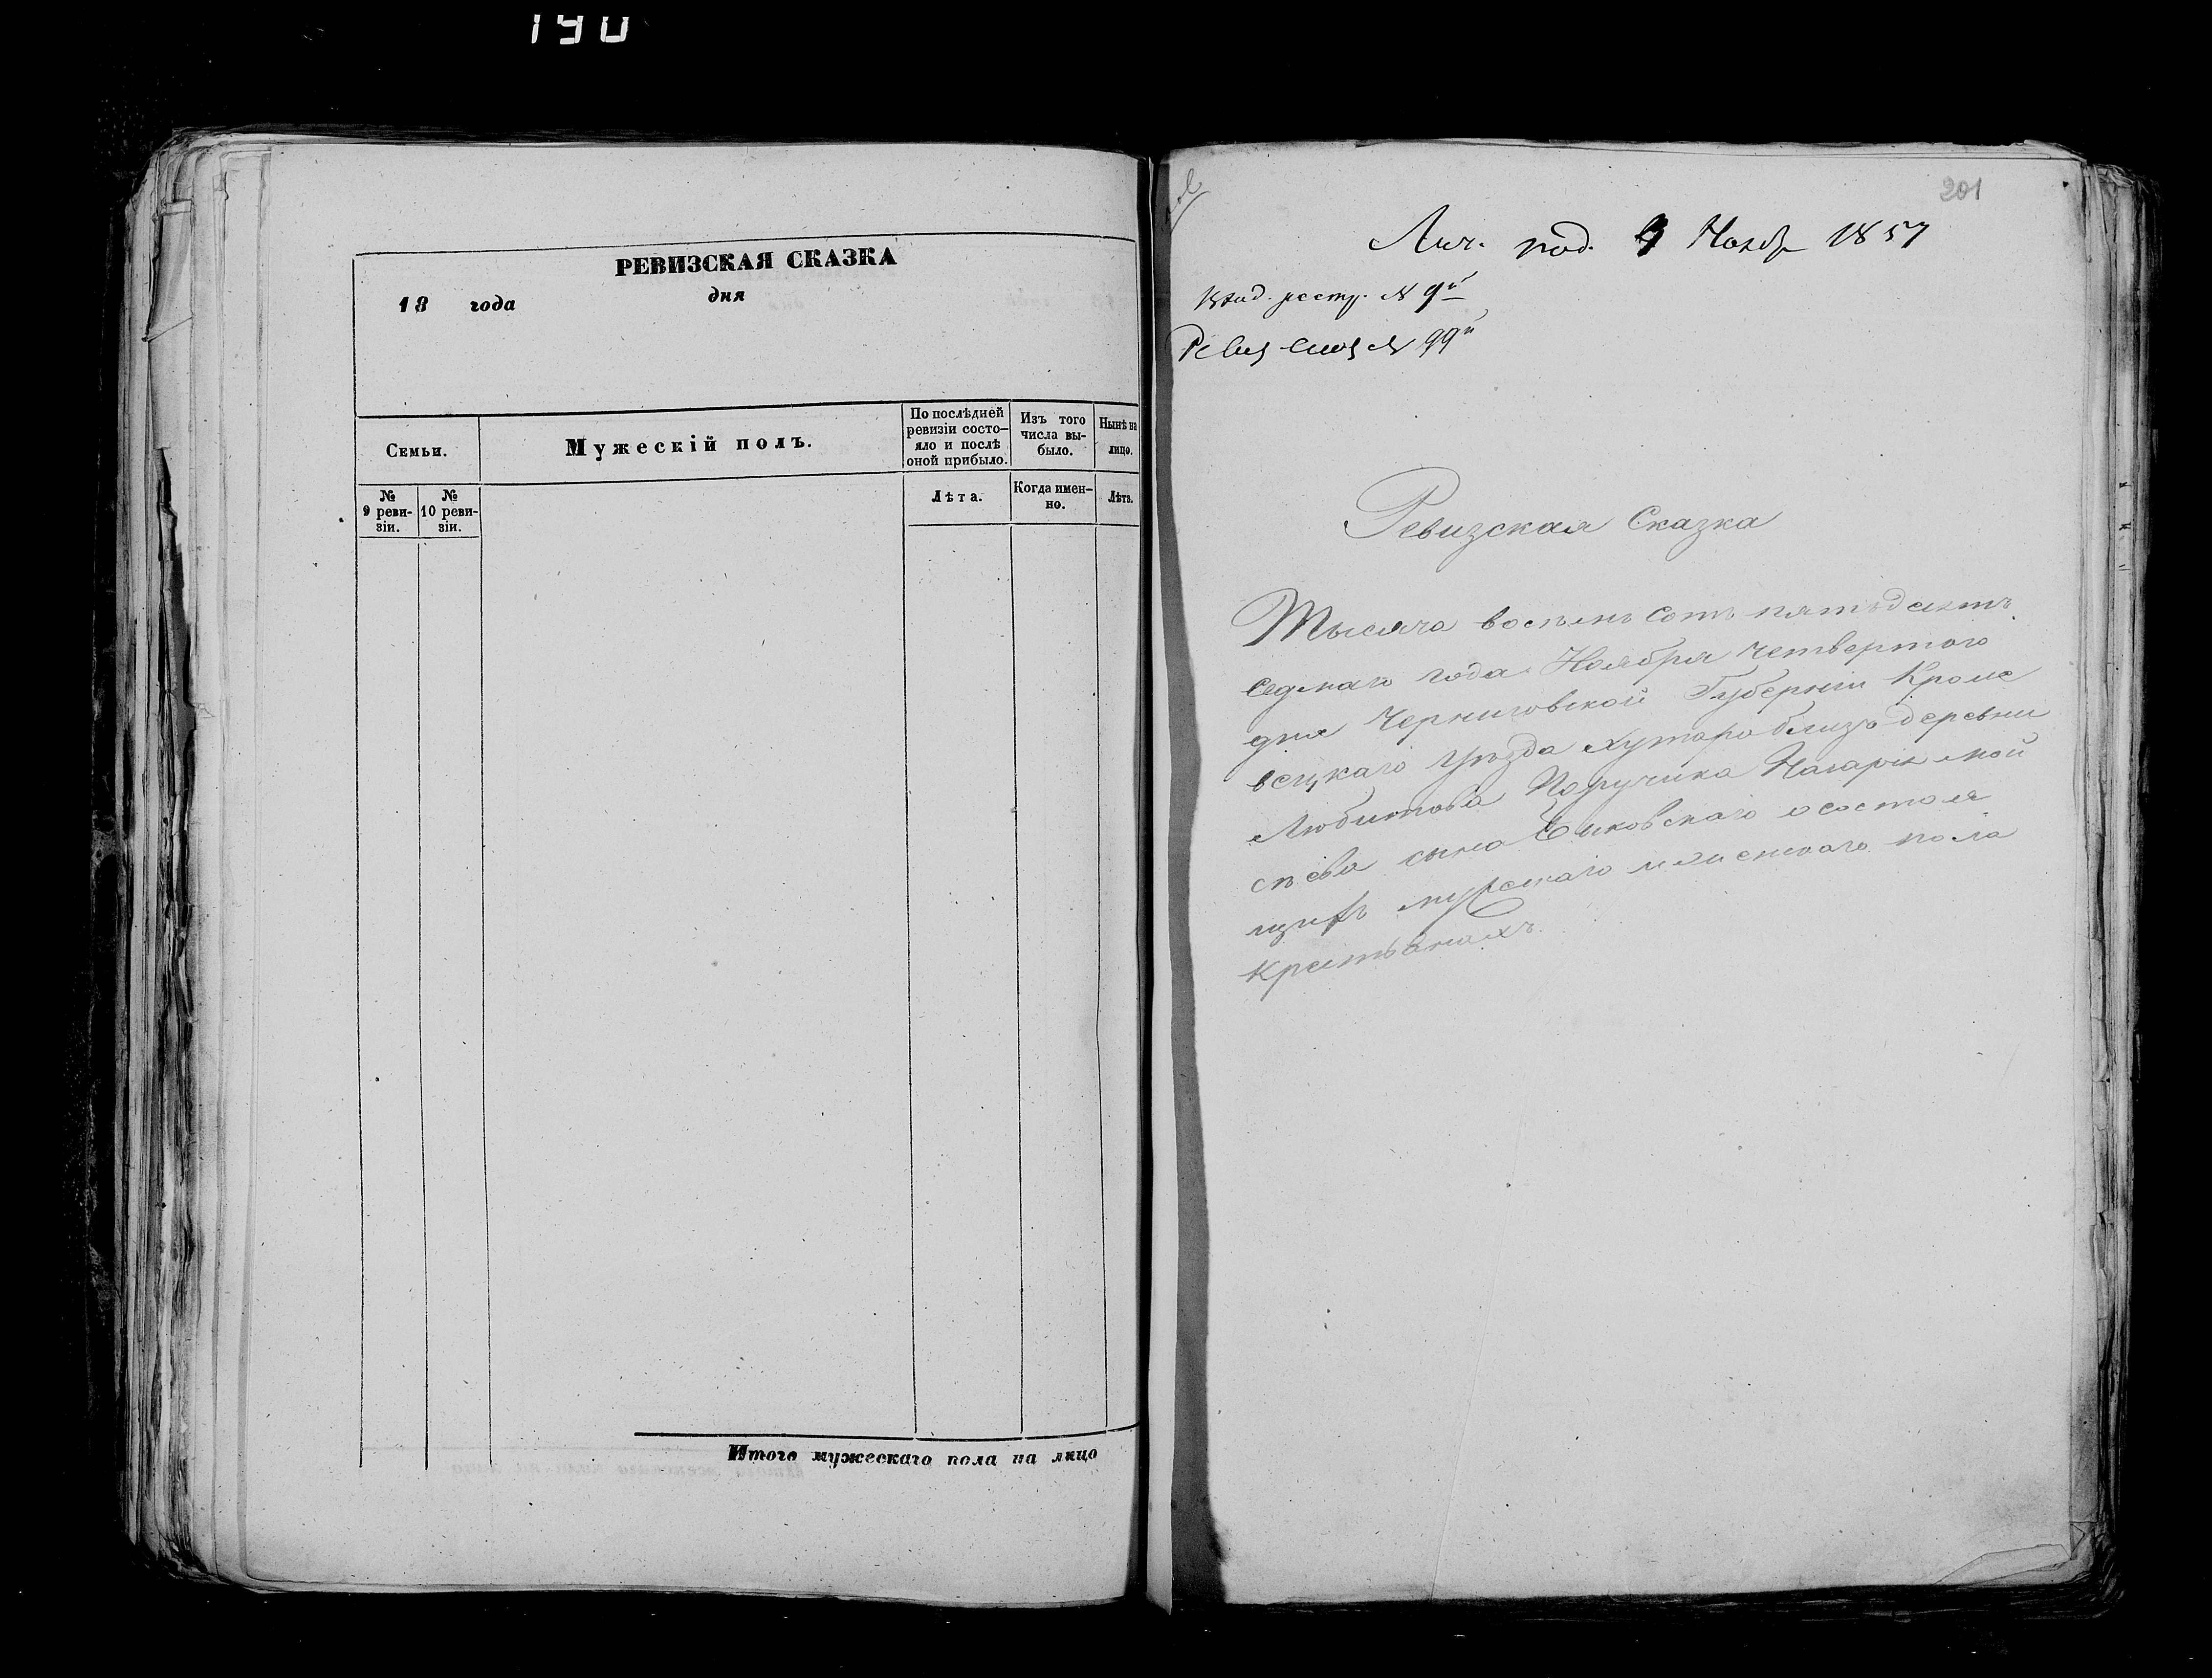 190
РЕВИЗСКАЯ СКАЗКА
18 года дня
Семьи.
Мужескій полъ.
По послѣдней ревизіи состо-
яло и послѣ оной прибыло.
Изъ того числа вы-
было.
Нынѣ на лицо.
№ 9 реви-
зіи.
№ 10 реви-
зіи.
Лѣта.
Когда имен-
но.
Лѣта.
Итого мужескаго пола на лицо
201
Лич. под. Ноябр 1857
реестр. № 9й
№ 99й
Ревизская Сказка
Тысяча восемь сотъ пятьдесятъ
седмаго года Ноября четвертого
дня Черниговской Губерніи Кроле
вецкаго Уѣзда хутара близъ деревни
Любитова Поручика
сына о состоя
щихъ мужескаго и женскаго пола
Крестьянахъ